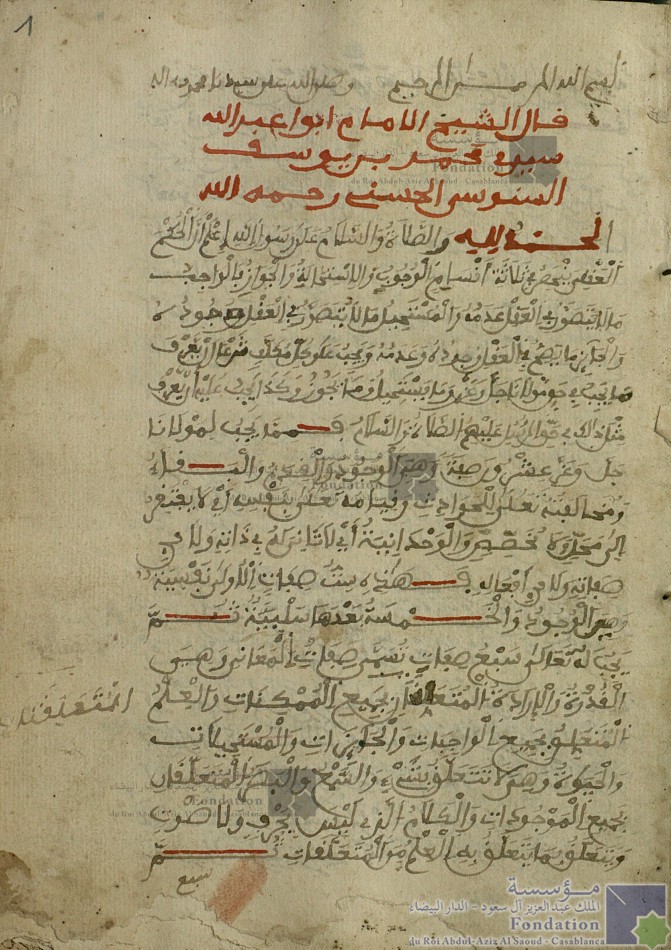 1
بسم الله الرحمن الرحيم وصلى الله على سيدنا محمد واله
قال الشيخ الامام ابوا عبد الله
سيدي محمد بن يوسف
السنوسي الحسني رحمه الله
الحمد لله والصلاة والسلام على رسول الله اعلم أن الحكم
العقلي ينحصر في ثلاثة أقسام الوجوب والاستحالة والجواز فالواجب
ما لا يتصور في العقل عدمه والمستحيل ما لا يتصور في العقل وجوده
والجائز ما يصح في العقل وجوده وعدمه ويجب على كل مكلف شرعا أن يعرف
ما يجب في حق مولانا جل وعز وما يستحيل وما يجوز وكذا يجب عليه أن يعرف
مثل ذلك في حق الرسل عليهم الصلاة والسلام فمما يجب لمولانا
جل وعز عشرون صفة وهي الوجود والقدم والبقاء
ومخالفته تعلى للحوادث وقيامه تعلى بنفسه أي لا يفتقر
الى محل ولا مخصص والوحدانية أي لا ثاني له في ذاته ولا في
صفاته ولا في أفعاله فهذه ست صفات الأولى نفسية
وهي الوجود والخمسة بعدها سلبية ثم
يجب له تعالى سبع صفات تسمى صفات المعاني وهي
القدرة والإرادة المتعلقتان بجميع الممكنات والعلم
المتعلقتان
المتعلق بجميع الواجبات والجائزات والمستحيلات
والحيوة وهي لا تتعلق بشيء والسمع والبصر المتعلقان
بجميع الموجودات والكلام الذي ليس بحرف ولا صوت
ويتعلق بما يتعلق به العلم من المتعلقات ثم
سبع
مؤسسة
الملك عبد العزيز آل سعود - الدار البيضاء
Fondation
du Roi Abdul-Aziz Al Saoud - Casablanca